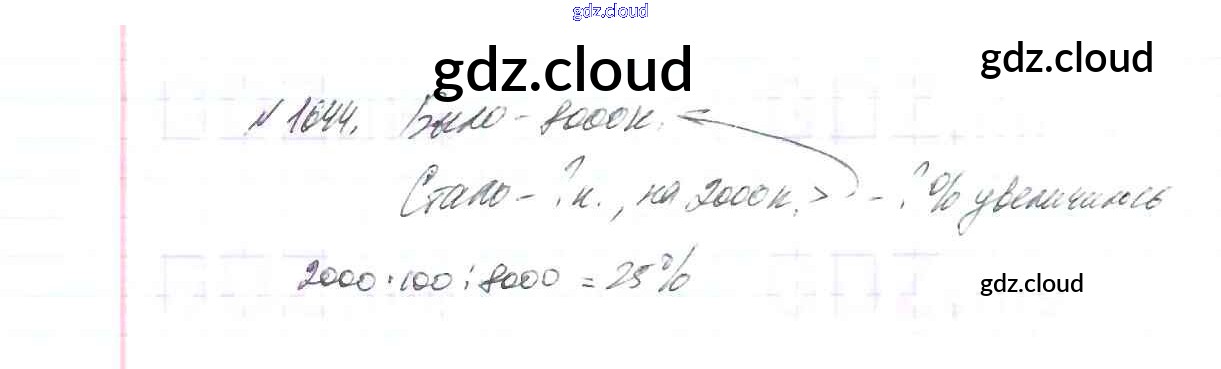 gdz.cloud
gdz.cloud
gdz.cloud
№ 1644. Было - 8000к.
Стало - ?к., на 2000к. > - ?% увеличилось
2000·100:8000 = 25%
gdz.cloud